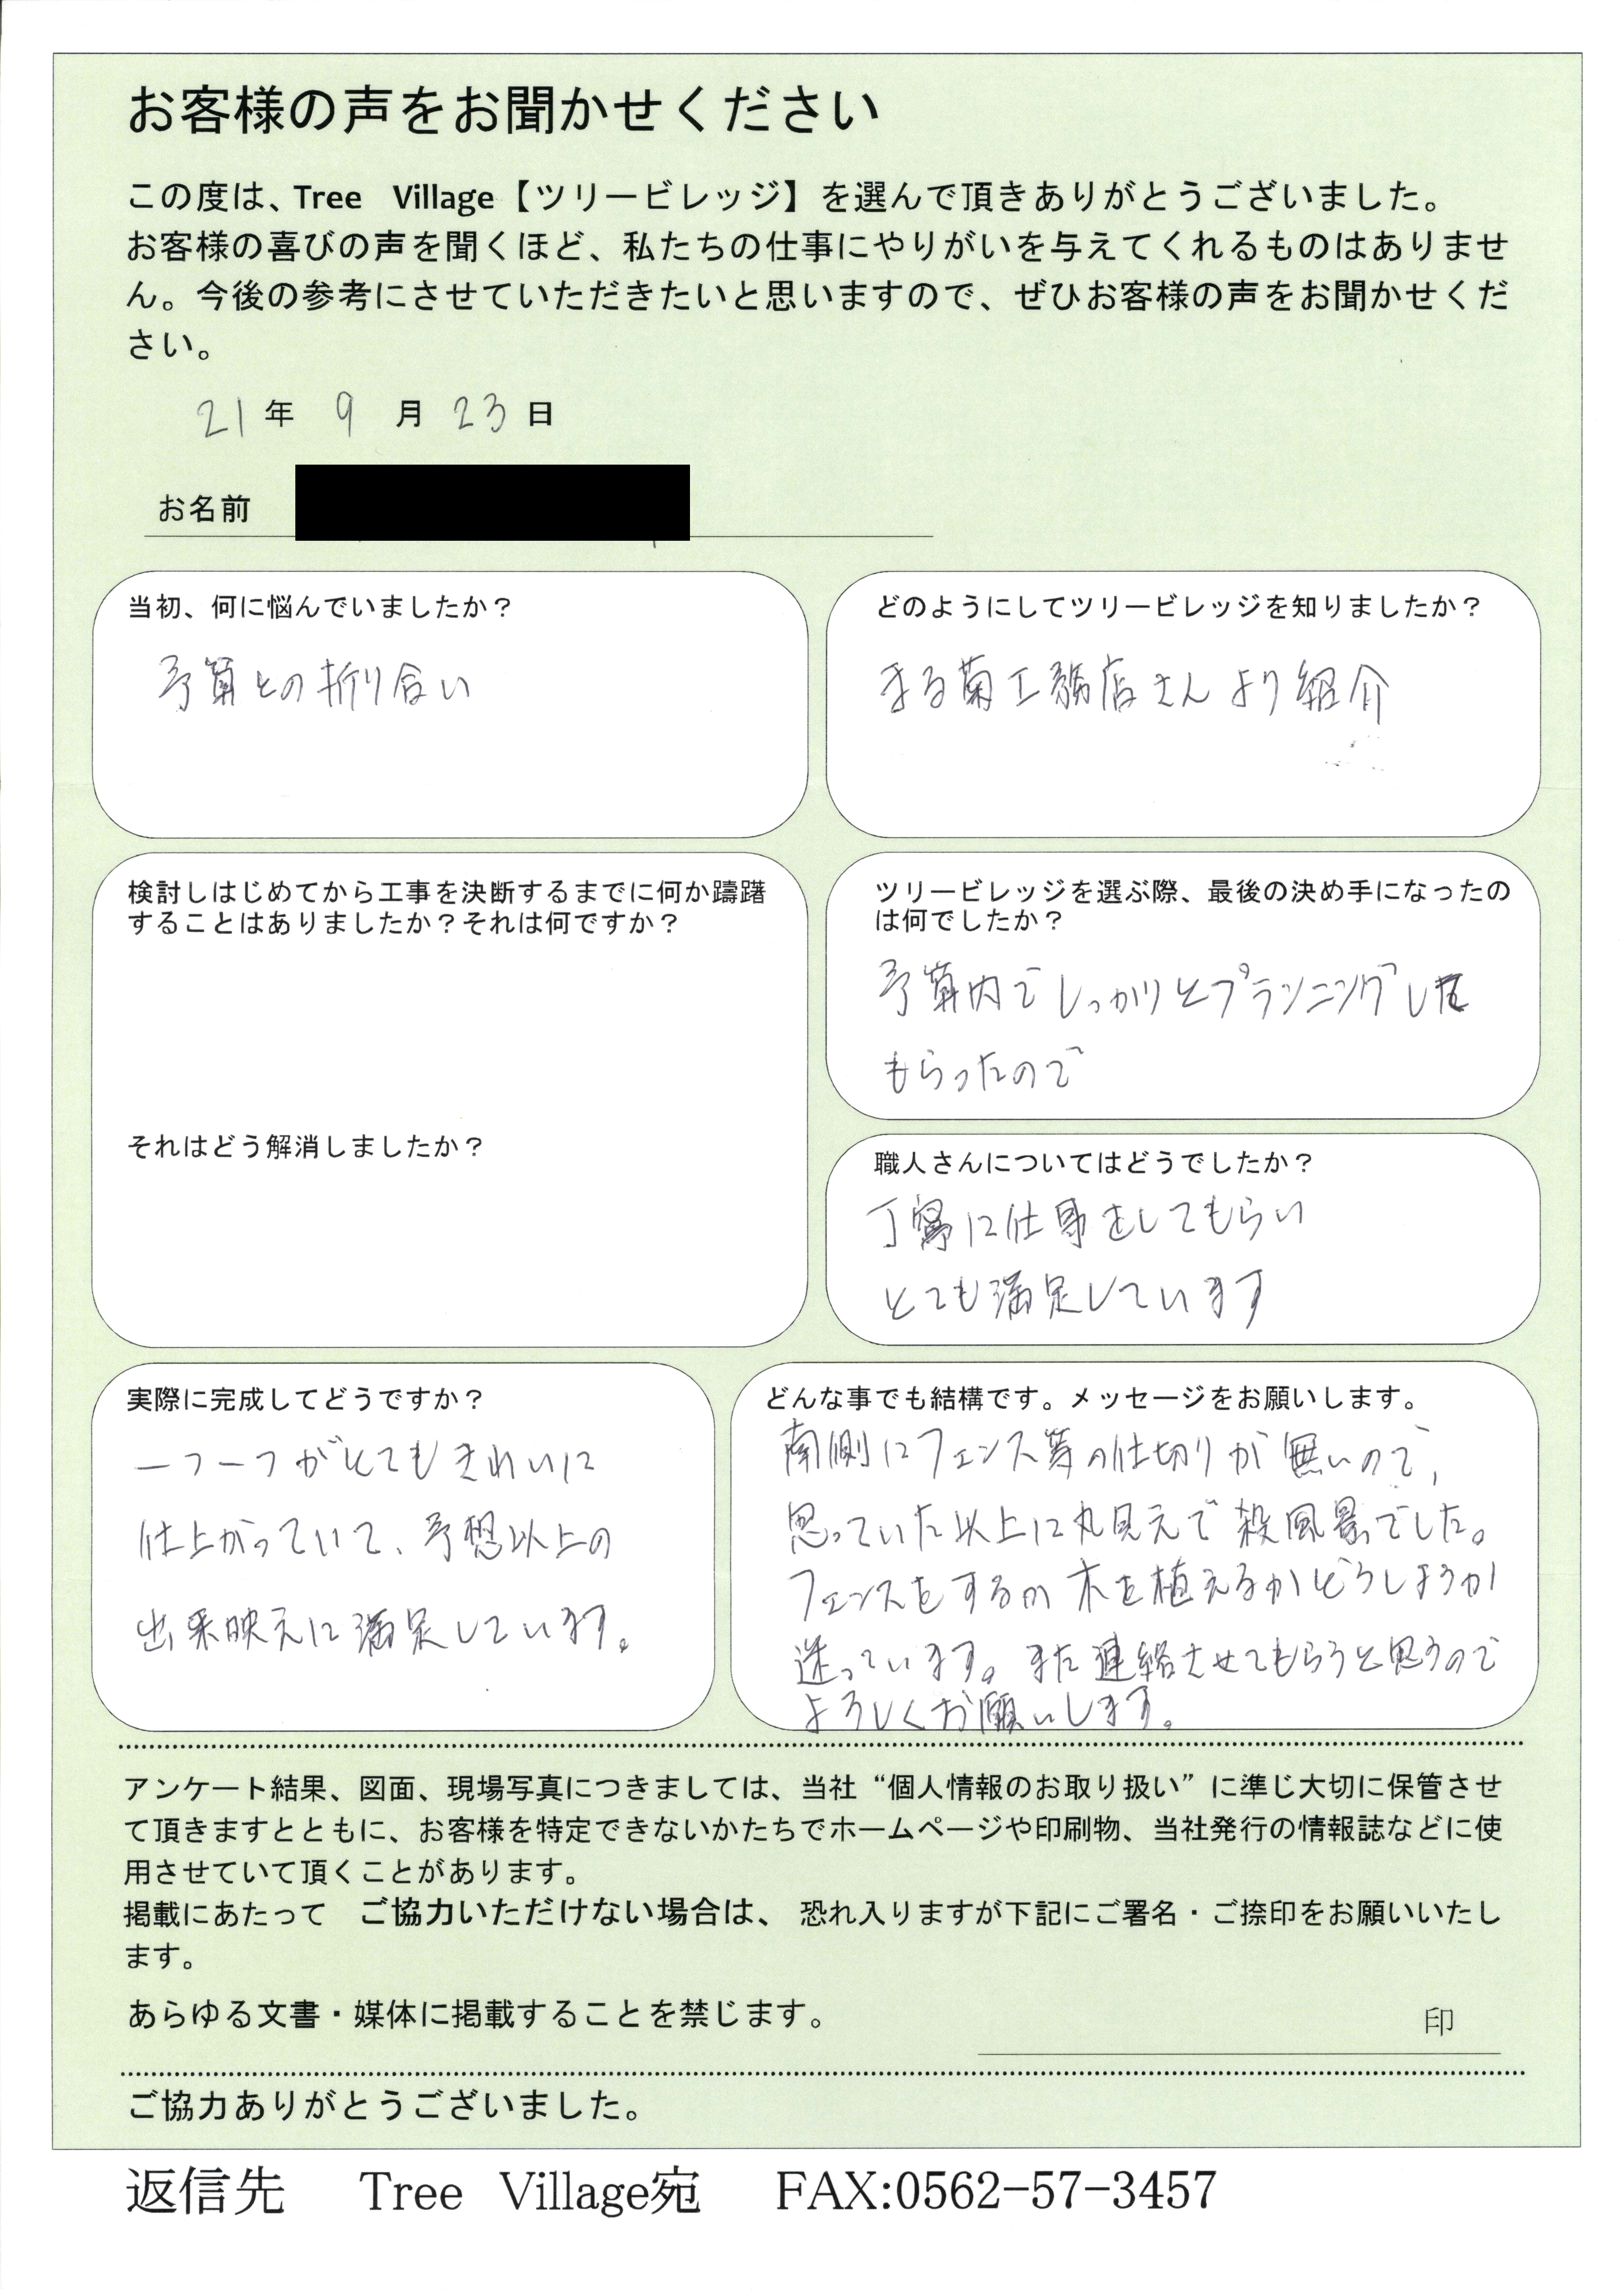 お客様の声をお聞かせください
この度は、Tree Village【ツリービレッジ】を選んで頂きありがとうございました。
お客様の喜びの声を聞くほど、私たちの仕事にやりがいを与えてくれるものはありませ
ん。今後の参考にさせていただきたいと思いますので、ぜひお客様の声をお聞かせくだ
さい。
21年 9月 23日
お名前
当初、何に悩んでいましたか？
予算との折り合い
どのようにしてツリービレッジを知りましたか？
まる菊工務店さんより紹介
検討しはじめてから工事を決断するまでに何か躊躇
することはありましたか？それは何ですか？
それはどう解消しましたか？
ツリービレッジを選ぶ際、最後の決め手になったの
は何でしたか？
予算内でしっかりとプランニングして
もらったので
職人さんについてはどうでしたか？
丁寧に仕事をしてもらい
とても満足しています
実際に完成してどうですか？
一つ一つがとてもきれいに
仕上がっていて、予想以上の
出来映えに満足しています。
どんな事でも結構です。メッセージをお願いします。
南側にフェンス等の仕切りが無いので、
思っていた以上に丸見えで殺風景でした。
フェンスをするか木を植えるかどうしようか
迷っています。また連絡させてもらうと思うので
よろしくお願いします。
アンケート結果、図面、現場写真につきましては、当社“個人情報のお取り扱い”に準じ大切に保管させ
て頂きますとともに、お客様を特定できないかたちでホームページや印刷物、当社発行の情報誌などに使
用させていて頂くことがあります。
掲載にあたって ご協力いただけない場合は、恐れ入りますが下記にご署名・ご捺印をお願いいたし
ます。
あらゆる文書・媒体に掲載することを禁じます。
印
ご協力ありがとうございました。
返信先 Tree Village宛 FAX:0562-57-3457